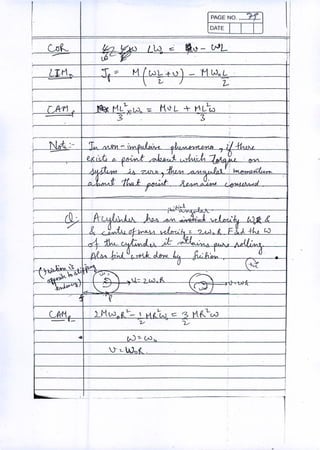 PAGE NO.
DATE
COR
LIM
J = M (ωL + v) - M ω₀L
2 2
CAM
ML² ω₀ = MvL + ML²ω
3 3
Note:- In non-impulsive phenomena, if there
exists a point about which Torque on
system is zero, then angular momentum
about that point remains conserved
initial angular
Q: A cylinder has an velocity ω₀ &
& centre of mass velocity = 2ω₀R. Find the ω
of the cylinder it attains pure rolling.
Also find work done by friction.
(rotation is opposite to slipping tendency)
u = 2ω₀R
v = ωR
P
CAM_P 2Mω₀R² - 1 MR²ω₀ = 3 MR²ω
2 2
ω = ω₀
v = ω₀R